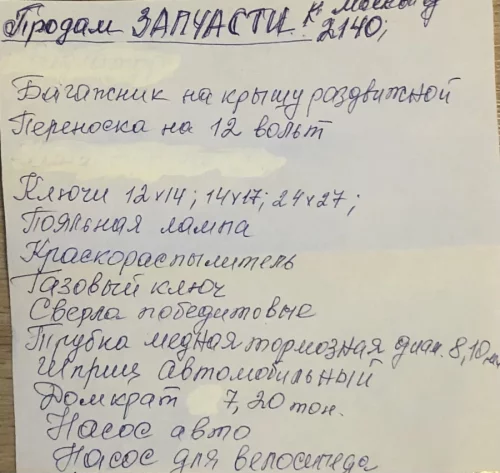 Продам ЗАПЧАСТИ. к
2140;
Багажник на крышу раздвижной
Переноска на 12 вольт
Ключи 12х14; 14х17; 24х27;
Пояльная лампа
Краскораспылитель
Газовый ключ
Сверла победитовые
Трубка медная тормозная диам. 8,10
Шприц автомобильный
Домкрат 7,20 тон.
Насос авто
Насос для велосипеда